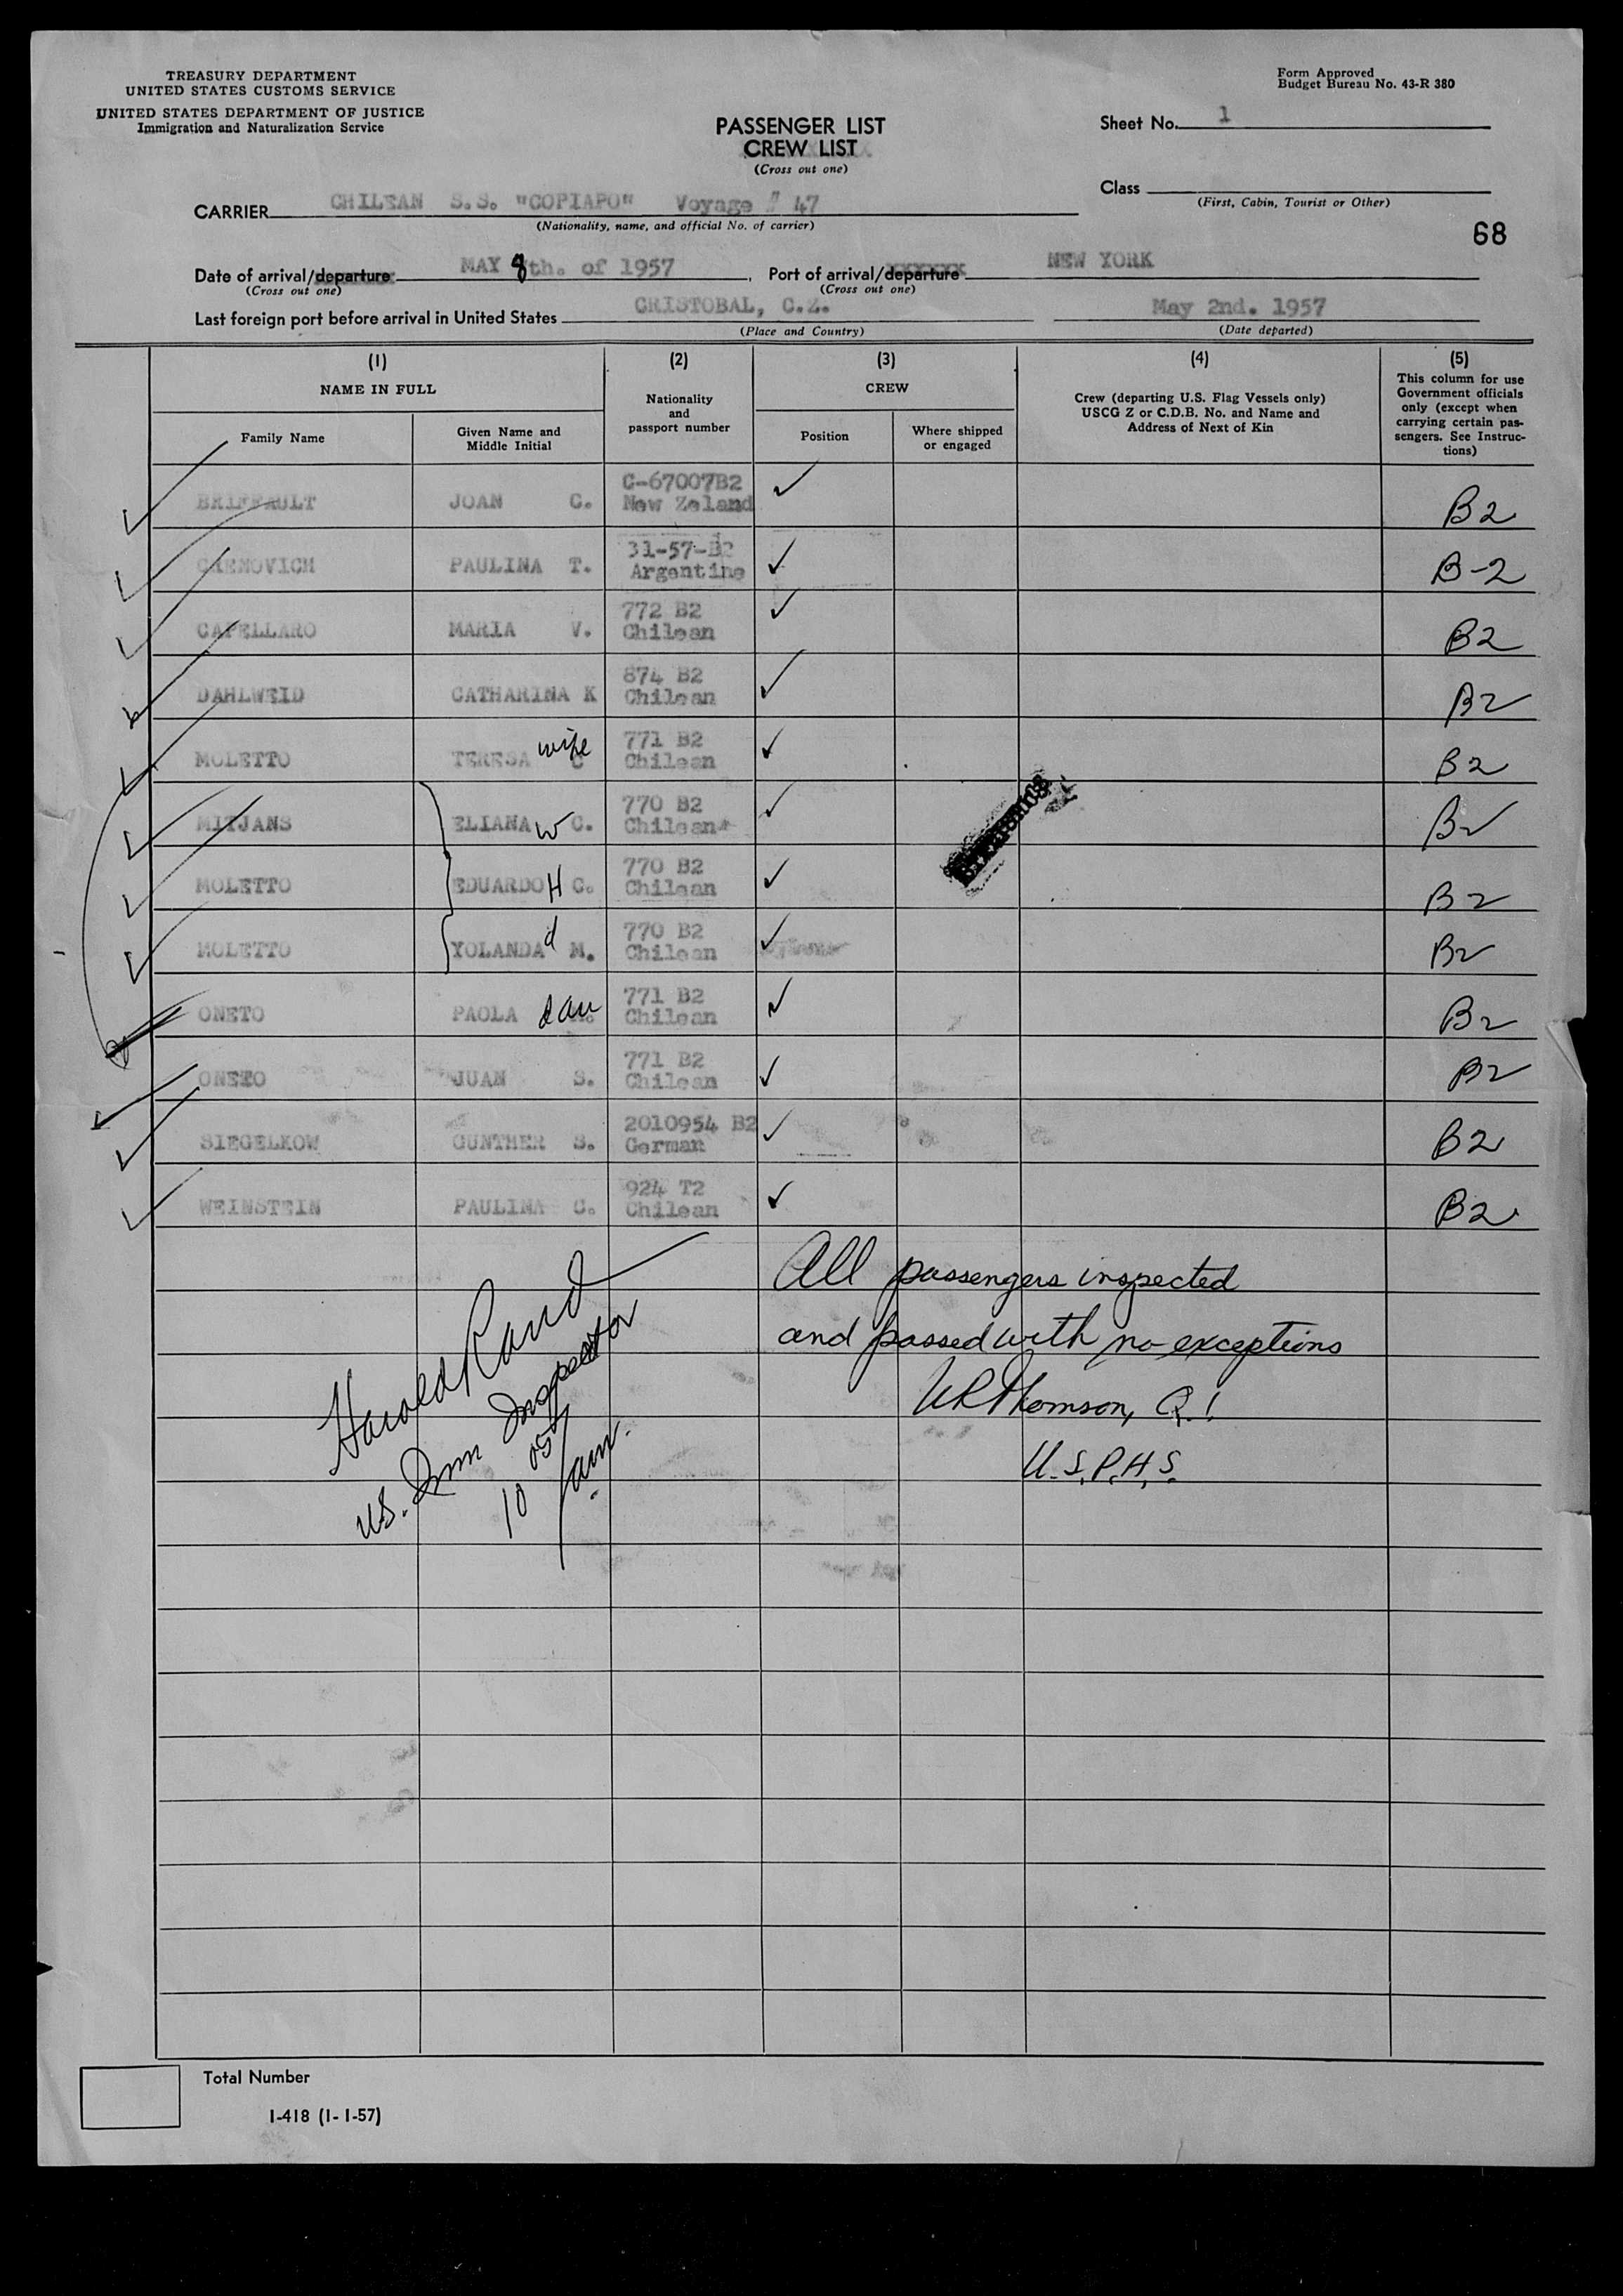 TREASURY DEPARTMENT
UNITED STATES CUSTOMS SERVICE
UNITED STATES DEPARTMENT OF JUSTICE
Immigration and Naturalization Service
Form Approved
Budget Bureau No. 43-R 380
PASSENGER LIST
CREW LIST
(Cross out one)
Sheet No. 1
Class
(First, Cabin, Tourist or Other)
CARRIER CHILEAN S.S. "COPIAPO" Voyage # 47
(Nationality, name, and official No. of carrier)
68
Date of arrival/departure MAY 8th. of 1957, Port of arrival/departure NEW YORK
(Cross out one) (Cross out one)
Last foreign port before arrival in United States CRISTOBAL, C.Z. May 2nd. 1957
(Place and Country) (Date departed)
(1) (2) (3) (4) (5)
NAME IN FULL
Family Name
Given Name and
Middle Initial
Nationality
and
passport number
CREW
Position
Where shipped
or engaged
Crew (departing U.S. Flag Vessels only)
USCG Z or C.D.B. No. and Name and
Address of Next of Kin
This column for use
Government officials
only (except when
carrying certain pas-
sengers. See Instruc-
tions)
C-67007B2
BRIFFAULT JOAN C. New Zeland B2
31-57-B2
PAULINA T. Argentine B-2
772 B2
CAPELLARO MARIA V. Chilean B2
874 B2
DAHLWEID CATHARINA K Chilean B2
771 B2
MOLETTO TERESA wife C Chilean B2
770 B2
MITJANS ELIANA w C. Chilean B2
770 B2
MOLETTO EDUARDO H C. Chilean B2
770 B2
MOLETTO YOLANDA d M. Chilean B2
771 B2
ONETO PAOLA dau Chilean B2
771 B2
ONETO JUAN S. Chilean B2
2010954 B2
SIEGELKOW GUNTHER S. German B2
924 T2
WEINSTEIN PAULINA C. Chilean B2
All passengers inspected
and passed with no exceptions
WRThomson, Q.I.
U.S.P.H.S.
Harold Rand
US. Imm Inspector
10 05 am.
Total Number
I-418 (1-1-57)